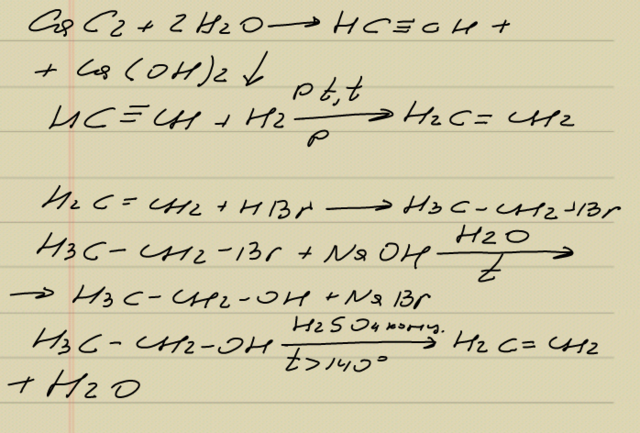 CaC2 + 2H2O → HC≡CH +
+ Ca(OH)2 ↓
HC≡CH + H2 Pt, t → p H2C=CH2
H2C=CH2 + HBr → H3C-CH2-Br
H3C-CH2-Br + NaOH H2O → t
→ H3C-CH2-OH + NaBr
H3C-CH2-OH H2SO4 конц. → t>140° H2C=CH2
+ H2O